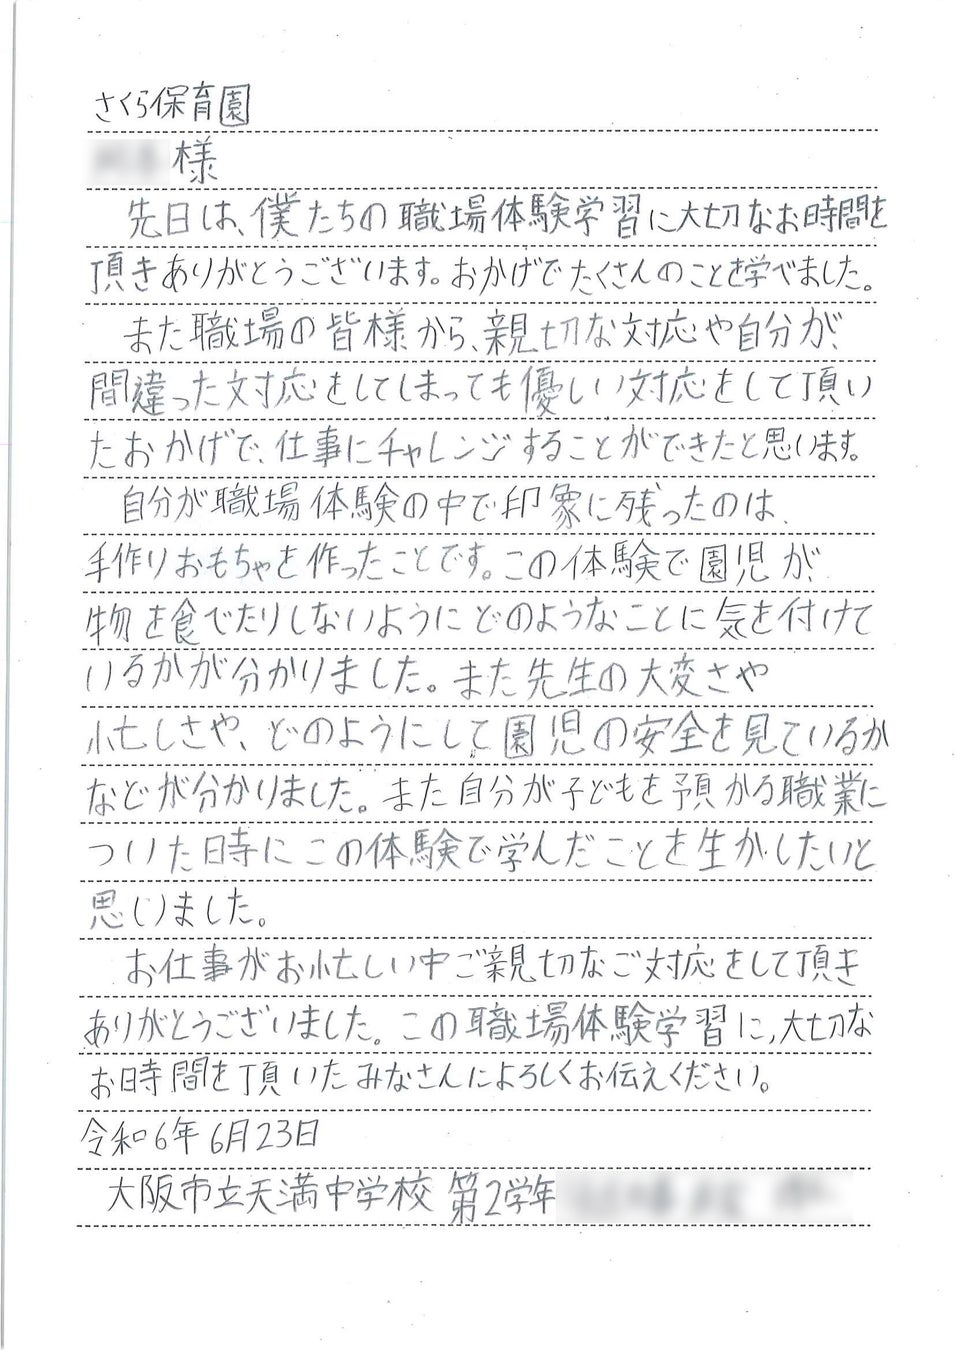 さくら保育園
様
先日は、僕たちの職場体験学習に大切なお時間を
頂きありがとうございます。おかげでたくさんのことを学べました。
また職場の皆様から、親切な対応や自分が、
間違った対応をしてしまっても優しい対応をして頂い
たおかげで、仕事にチャレンジすることができたと思います。
自分が職場体験の中で印象に残ったのは、
手作りおもちゃを作ったことです。この体験で園児が、
物を食べたりしないようにどのようなことに気を付けて
いるかが分かりました。また先生の大変さや
忙しさや、どのようにして園児の安全を見ているか
などが分かりました。また自分が子どもを預かる職業に
ついた時にこの体験で学んだことを生かしたいと
思いました。
お仕事がお忙しい中ご親切なご対応をして頂き
ありがとうございました。この職場体験学習に、大切な
お時間を頂いたみなさんによろしくお伝えください。
令和6年6月23日
大阪市立天満中学校 第2学年